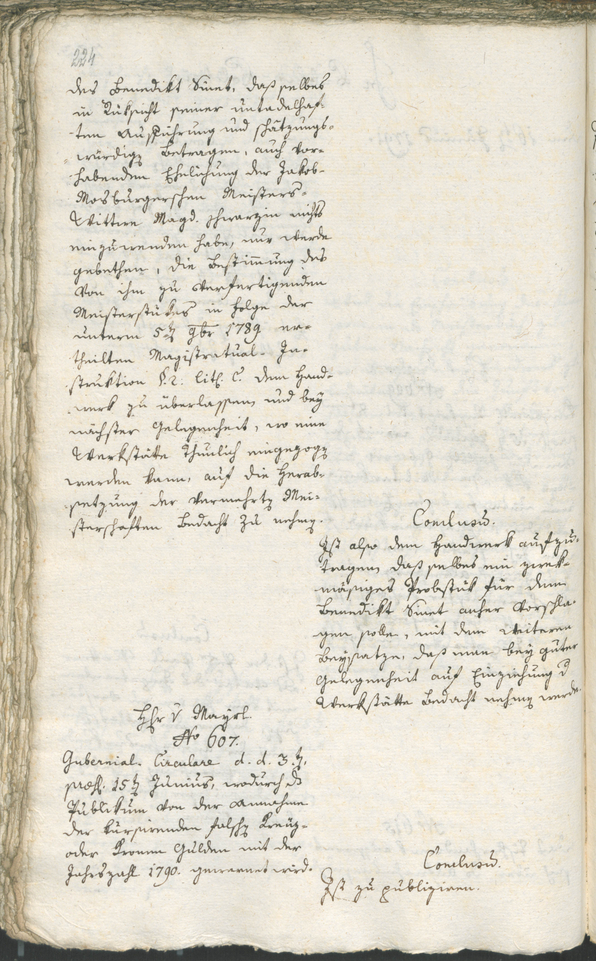 224
des Benedikt Sinet, daß selbes
in Rüksicht seiner untadelhaf-
ten Aufführung und schätzungs-
würdigen Betragen, auch vor-
habenden Ehelichung der Jakob-
Mosburgerschen Meisters-
Wittwe Magd. schwarzin nichts
einzuwenden habe, nur werde
gebethen, die Bestimmung des
von ihm zu verfertigenden
Meisterstükes in Folge der
unterm 5ten 9br 1789 er-
theilten Magistratual-In-
struktion §. 2. litt. C. dem Hand-
werk zu überlassen, und bey
nächster Gelegenheit, wo eine
Werkstätte thunlich eingezogen
werden kann, auf die Herab-
setzung der vermehrten Mei-
sterschaften Bedacht zu nehmen.
Conclusum.
Ist also dem Handwerk aufzu-
tragen, daß selbes ein zwek-
mäßiges Probstük für dem
Benedikt Sinet anher vorschla-
gen solle, mit dem weiteren
Beysatze, daß man bey guter
Gelegenheit auf Einziehung d
Werkstätte Bedacht nehmen werde
Hhr v Mayrl.
No 607.
Gubernial-Circulare d. d. 3ten,
praes. 15ten Junius, wodurch das
Publikum von der Annahme
der kursirenden falschen Kreuz-
oder Kronen Gulden mit der
Jahrszahl 1790. gewarnet wird.
Conclusum.
Ist zu publiziren.